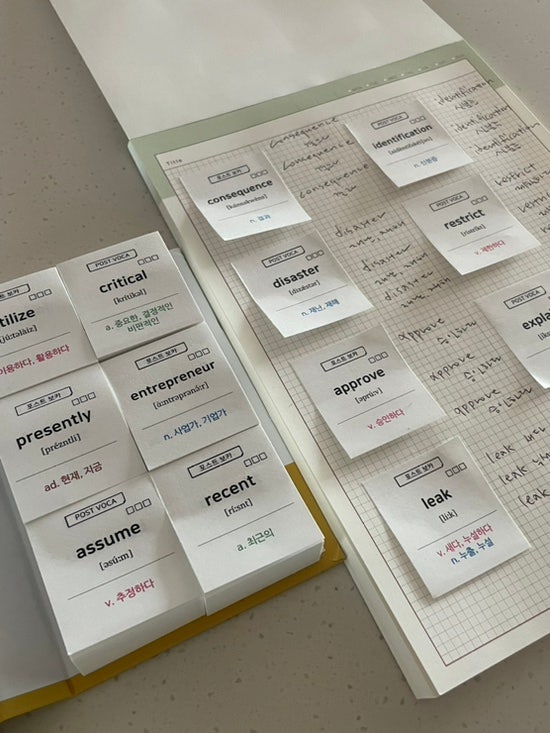 포스트 보카
tilize
이용하다, 활용하다
POST VOCA
critical
[krítikəl]
a. 중요한, 결정적인
비판적인
포스트 보카
presently
[prézntli]
ad. 현재, 지금
포스트 보카
entrepreneur
[ὰːntrəprənə́ːr]
n. 사업가, 기업가
POST VOCA
assume
[əsúːm]
v. 추정하다
포스트 보카
recent
[ríːsnt]
a. 최근의
Title
포스트 보카
consequence
n. 결과
consequence
결과
consequence
결과
consequence
POST VOCA
identification
n. 신분증
identification
신분증
identification
신분증
identification
POST VOCA
disaster
n. 재난, 재해
disaster
재난, 재해
disaster
재난, 재해
disaster
재난, 재해
POST VOCA
restrict
v. 제한하다
restrict
restrict
포스트 보카
approve
[əprúːv]
v. 승인하다
approve
승인하다
approve
승인하다
approve
승인하다
포스트 보카
expla
포스트 보카
leak
[liːk]
v. 새다, 누설하다
n. 누출, 누설
leak
leak
leak